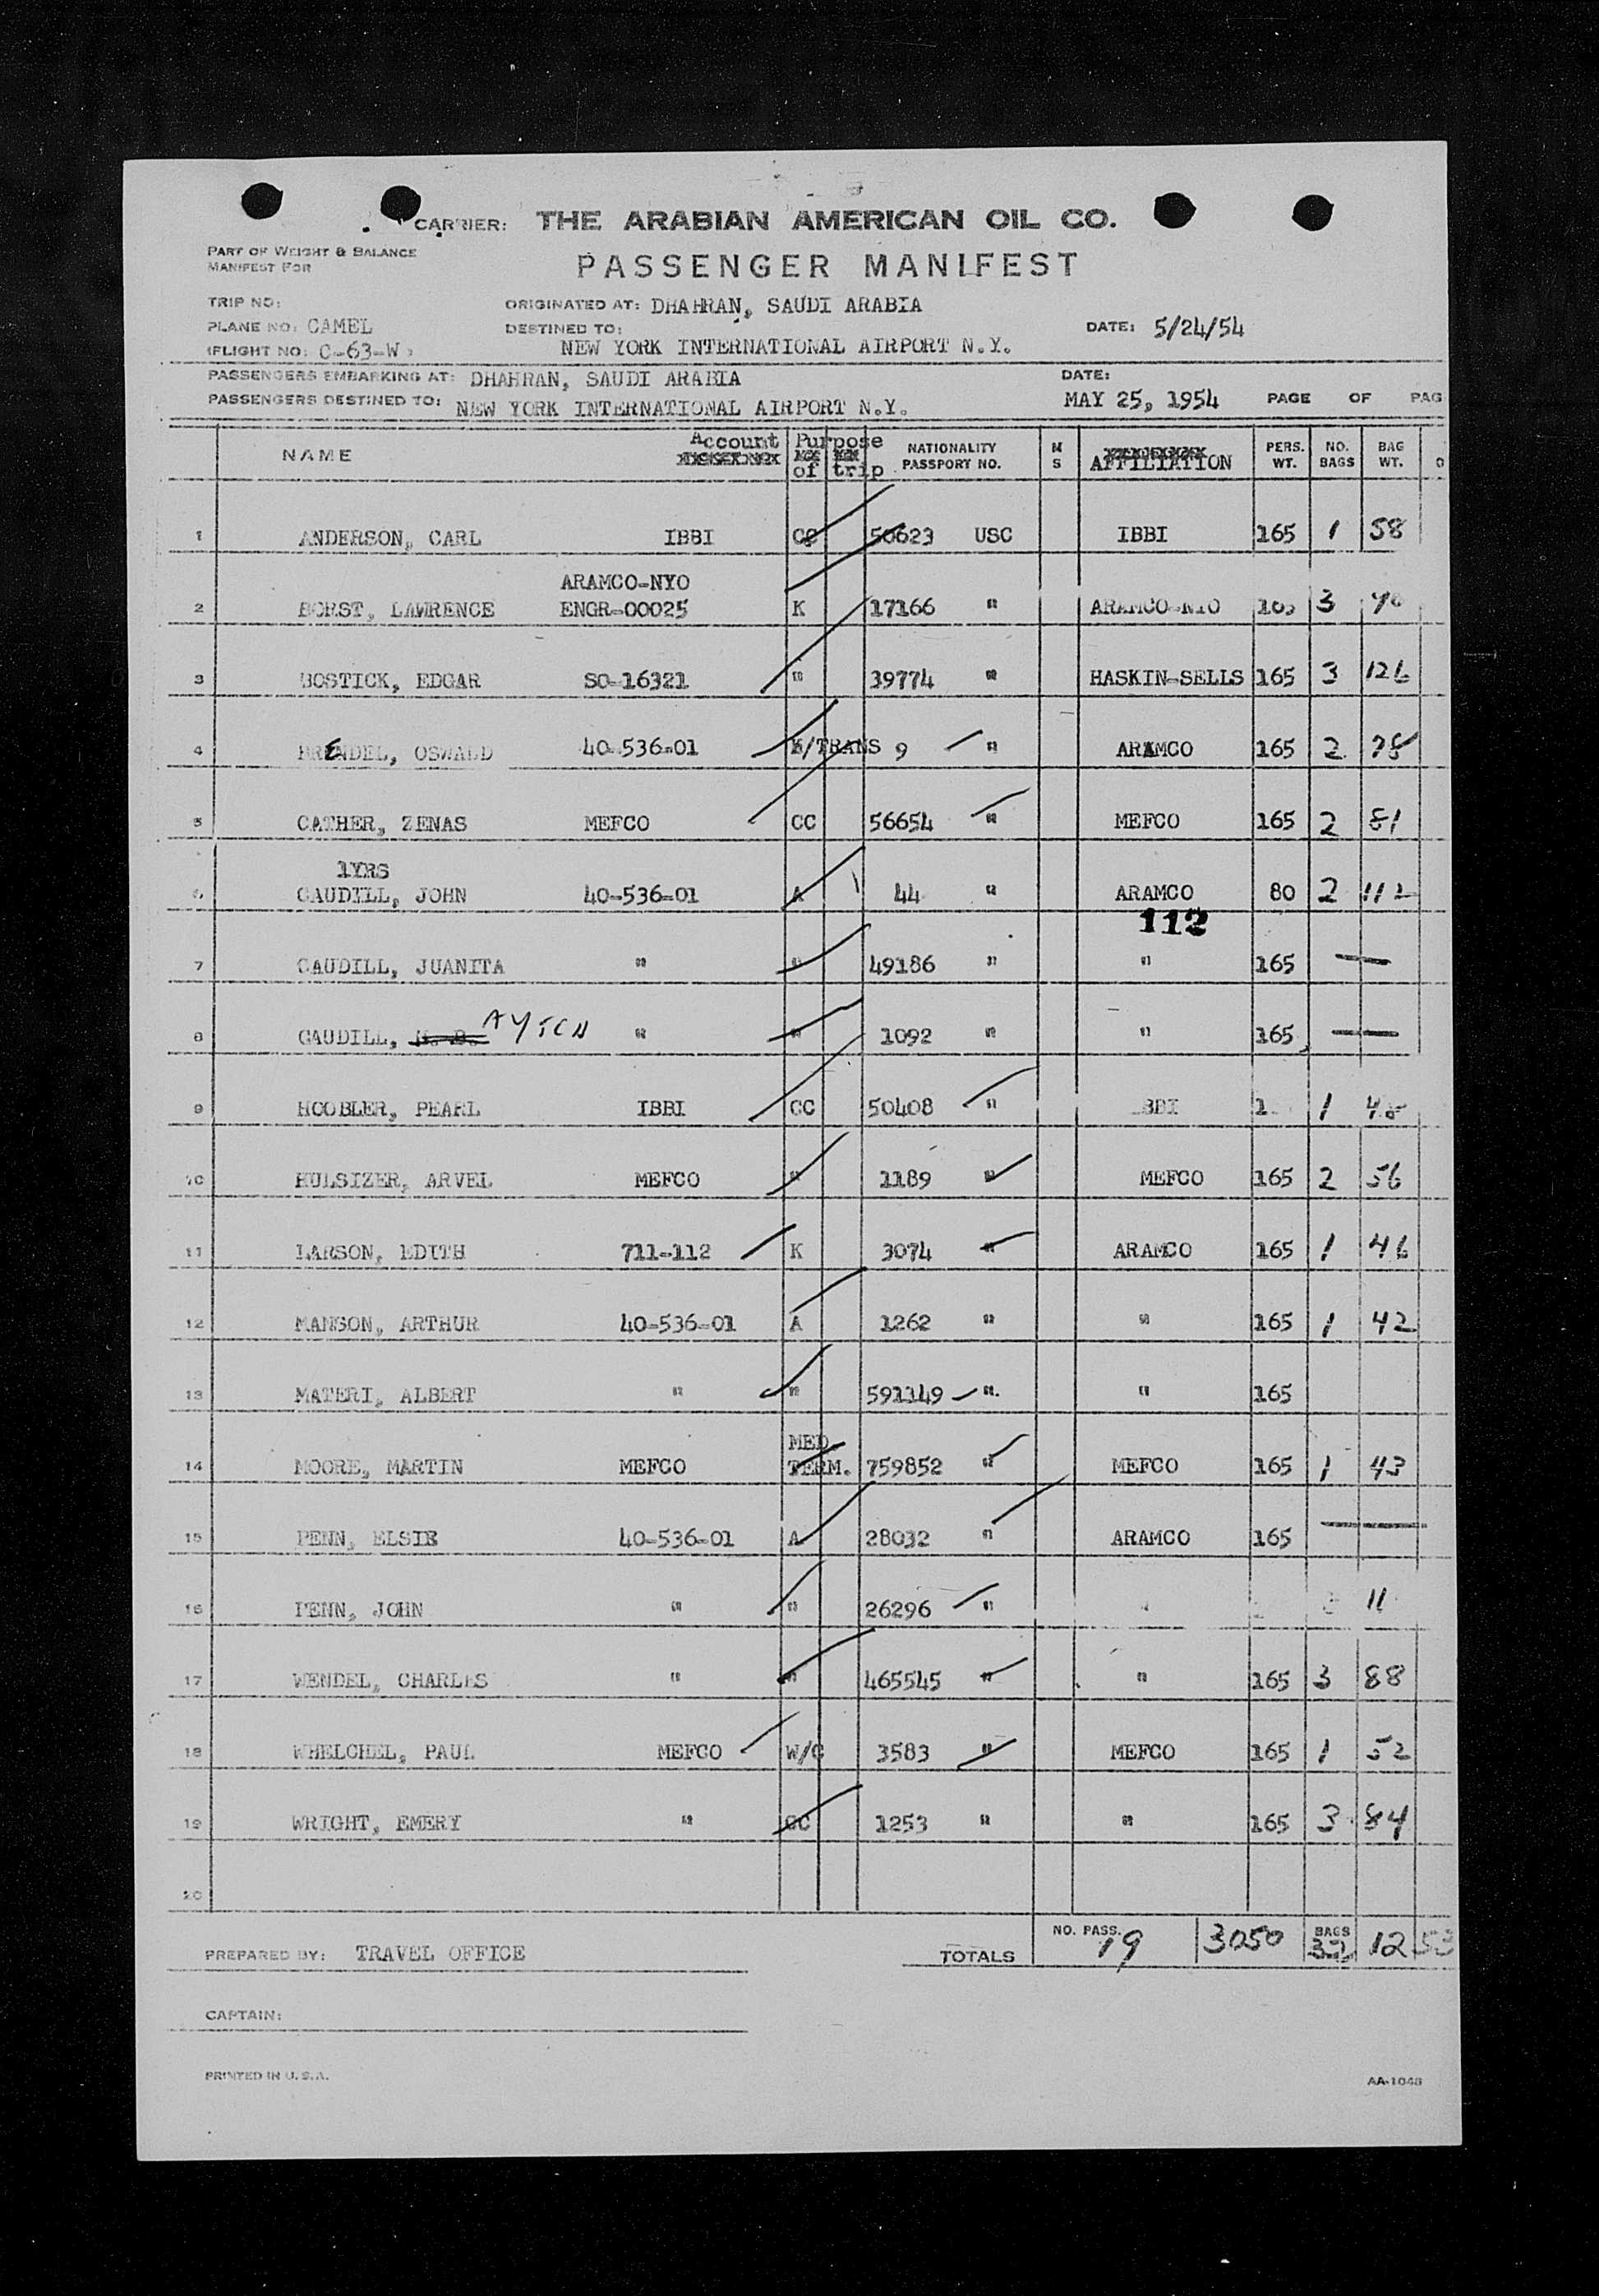 CARRIER: THE ARABIAN AMERICAN OIL CO.
PART OF WEIGHT & BALANCE
MANIFEST FOR
PASSENGER MANIFEST
TRIP NO: ORIGINATED AT: DHAHRAN, SAUDI ARABIA
PLANE NO: CAMEL DESTINED TO: DATE: 5/24/54
FLIGHT NO: C-63-W NEW YORK INTERNATIONAL AIRPORT N.Y.
PASSENGERS EMBARKING AT: DHAHRAN, SAUDI ARABIA DATE:
PASSENGERS DESTINED TO: NEW YORK INTERNATIONAL AIRPORT N.Y. MAY 25, 1954 PAGE OF PAG
NAME Account Purpose of trip NATIONALITY PASSPORT NO. M S AFFILIATION PERS. WT. NO. BAGS BAG WT.
1 ANDERSON, CARL IBBI CC 50623 USC IBBI 165 1 58
ARAMCO-NYO
2 BORST, LAWRENCE ENGR-00025 K 17166 " ARAMCO-NYO 165 3
3 BOSTICK, EDGAR SO-16321 " 39774 " HASKIN-SELLS 165 3 126
4 BRENDEL, OSWALD 40-536-01 K/TRANS 9 " ARAMCO 165 2 78
5 CATHER, ZENAS MEFCO CC 56654 " MEFCO 165 2 81
1YRS
6 CAUDILL, JOHN 40-536-01 A 44 " ARAMCO 80 2 112
112
7 CAUDILL, JUANITA " " 49186 " " 165 —
8 CAUDILL, " " 1092 " " 165 —
9 HOOBLER, PEARL IBBI CC 50408 " IBBI 1
10 HULSIZER, ARVEL MEFCO " 1189 " MEFCO 165 2 56
11 LARSON, EDITH 711-112 K 3074 " ARAMCO 165 1 46
12 MANSON, ARTHUR 40-536-01 A 1262 " " 165 1 42
13 MATERI, ALBERT " " 591149 " " 165
MED.
14 MOORE, MARTIN MEFCO TERM. 759852 " MEFCO 165 1 43
15 PENN, ELSIE 40-536-01 A 28032 " ARAMCO 165 —
16 PENN, JOHN " " 26296 "
17 WENDEL, CHARLES " " 465545 " " 165 3 88
18 WHELCHEL, PAUL MEFCO W/C 3583 " MEFCO 165 1 52
19 WRIGHT, EMERY " CC 1253 " " 165 3 84
20
PREPARED BY: TRAVEL OFFICE TOTALS NO. PASS. 19 3050 BAGS 1253
CAPTAIN:
PRINTED IN U.S.A. AA-1048